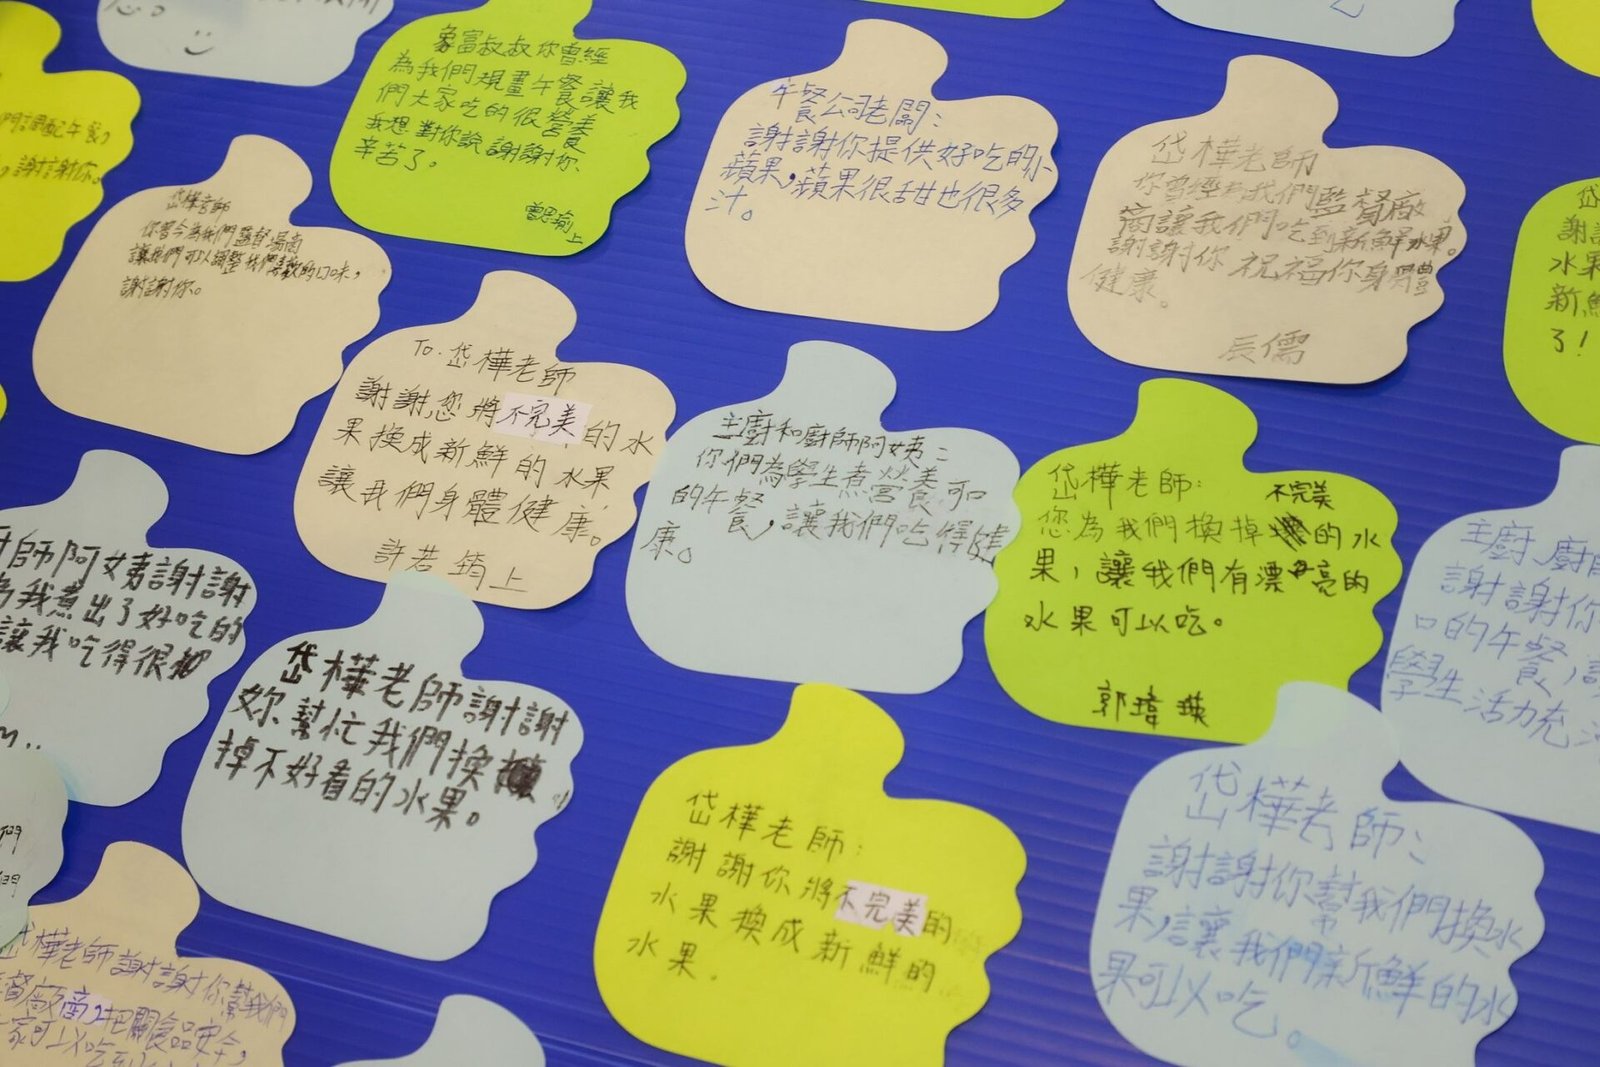 象富叔叔你曾經
為我們規畫午餐讓我
們大家吃的很營養
我想對你說謝謝你、
辛苦了。
曾思瑜上
午餐公司老闆：
謝謝你提供好吃的小
蘋果，蘋果很甜也很多
汁。
岱樺老師
你曾經為我們監督廠
商讓我們吃到新鮮水果。
謝謝你 祝福你身體
健康。
辰儒
謝謝你。
岱樺老師
讓我們可以調整我們
的口味，
謝謝你。
To.岱樺老師
謝謝您將不完美的水
果換成新鮮的水果
讓我們身體健康。
許若筠上
主廚和廚師阿姨：
你們為學生煮營養可口
的午餐，讓我們吃得健
康。
岱樺老師：
您為我們換掉不完美的水
果，讓我們有漂亮的
水果可以吃。
郭瑋瑛
新鮮
了！
師阿姨謝謝
為我煮出了好吃的
讓我吃得很
岱樺老師謝謝
妳幫忙我們換
掉不好看的水果。
岱樺老師：
謝謝你將不完美的
水果換成新鮮的
水果.
主廚、廚師
謝謝你
口的午餐，
學生活力充
岱樺老師：
謝謝你幫我們換水
果，讓我們新鮮的水
果可以吃。
岱樺老師謝謝你幫我們
督廠商，把關食品安全，
家可以吃到